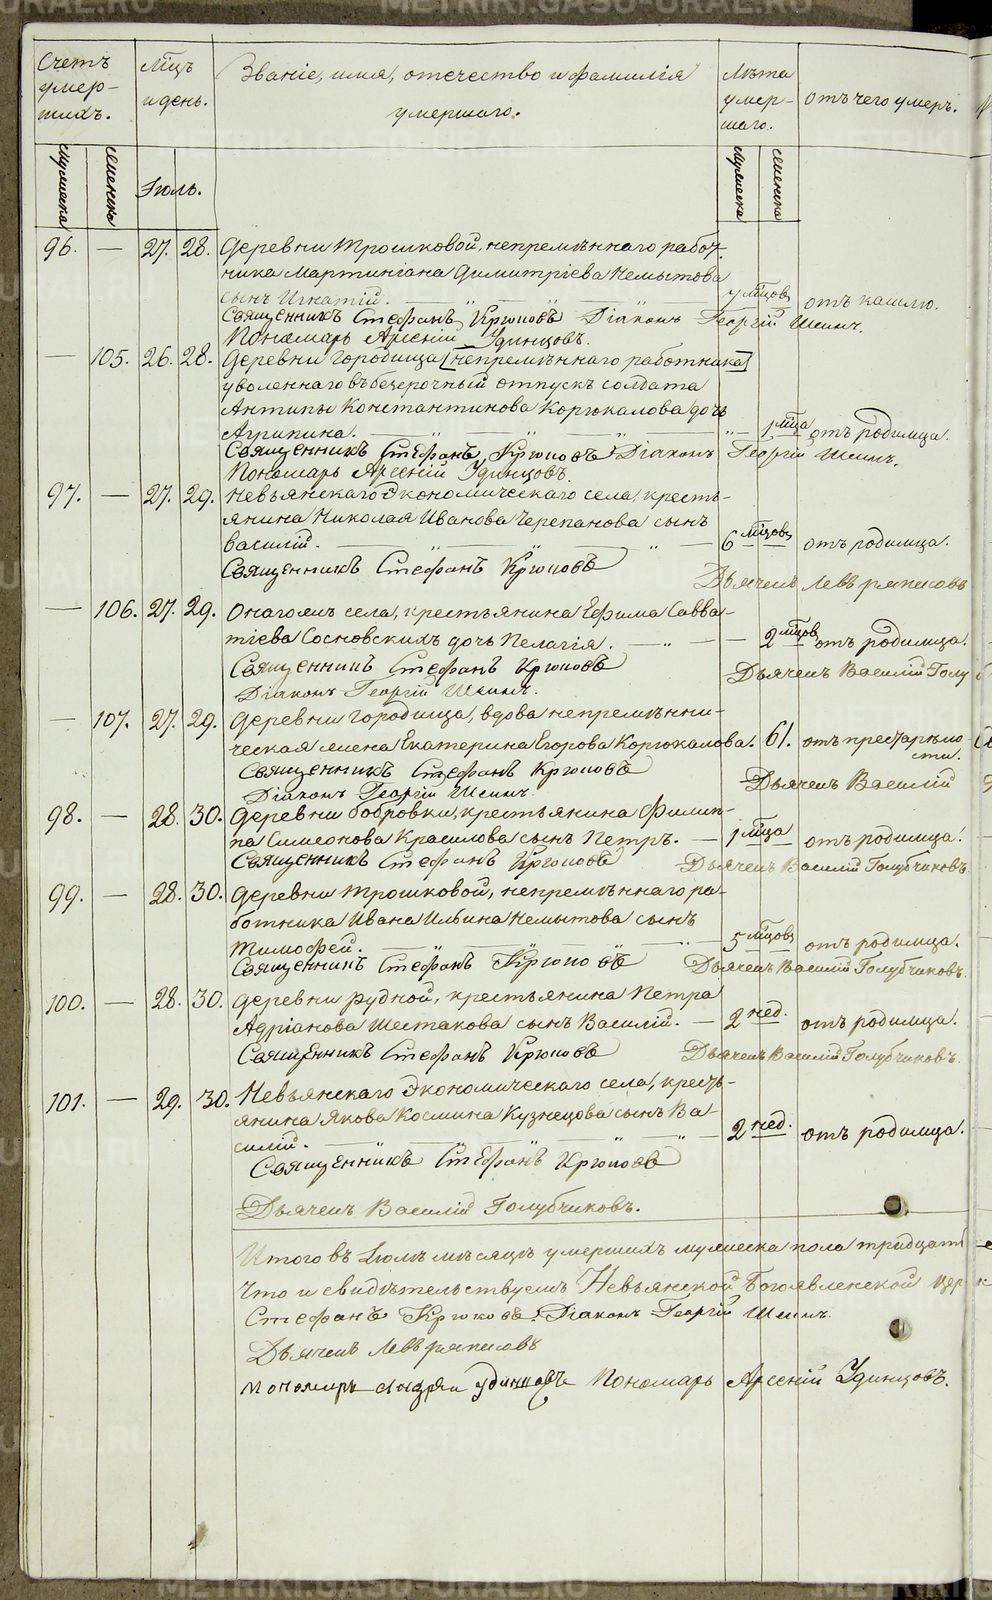 Счетъ умер-шихъ.
Мцъ и день.
Званіе, имя, отечество и фамилія умершаго.
Лѣта умер-шаго.
отъ чего умеръ.
Мужеска
женска
Іюль.
Мужеска
женска
96. — 27. 28. Деревни Трошковой, непремѣннаго работ-
ника Мартиніана Димитріева Немытова
сынъ Игнатій. 7 мцовъ отъ кашлю.
Священникъ Стефанъ Крюковъ Діаконъ Георгій Шеинъ.
Пономарь Арсеній Удинцовъ.
— 105. 26. 28. Деревни Городища [непремѣннаго работника]
уволеннаго въ безсрочный отпускъ солдата
Антипы Константинова Коркжалова дочь
Агрипина. 1 мца отъ родимца.
Священникъ Стефанъ Крюковъ Діаконъ Георгій Шеинъ.
Пономарь Арсеній Удинцовъ.
97. — 27. 29. Невьянскаго Экономическаго села, кресть-
янина Николая Иванова Черепанова сынъ
Василій. 6 мцовъ отъ родимца.
Священникъ Стефанъ Крюковъ
Дьячекъ Левъ
— 106. 27. 29. Онагожъ села, крестьянина Ефима Савва-
тіева Сосновскихъ дочь Пелагія. — 2 мцов отъ родимца.
Священникъ Стефанъ Крюковъ
Дьячекъ Василій Голу
Діаконъ Георгій Шеинъ.
— 107. 27. 29. Деревни Городища, вдова непремѣнни-
ческая жена Екатерина Егорова Коркжалова. 61. отъ престарѣло-
сти.
Священникъ Стефанъ Крюковъ
Дьячекъ Василій
Діаконъ Георгій Шеинъ.
98. — 28. 30. Деревни Бобровки, крестьянина Филип-
па Симеонова Красилова сынъ Петръ. — 1 мца отъ родимца.
Священникъ Стефанъ Крюковъ Дьячекъ Василій Голубчиковъ
99. — 28. 30. Деревни Трошковой, непремѣннаго ра-
ботника Ивана Ильина Немытова сынъ
Тимофей. 5 мцовъ отъ родимца.
Священникъ Стефанъ Крюковъ Дьячекъ Василій Голубчиковъ.
100. — 28. 30. Деревни Рудной, крестьянина Петра
Адріанова Шестакова сынъ Василій. — 2 нед. отъ родимца.
Священникъ Стефанъ Крюковъ Дьячекъ Василій Голубчиковъ.
101. — 29. 30. Невьянскаго Экономическаго села, кресть-
янина Якова Космина Кузнецова сынъ Ва-
силій. 2 нед. отъ родимца.
Священникъ Стефанъ Крюковъ
Дьячекъ Василій Голубчиковъ.
Итого въ Іюлѣ мѣсяцѣ умершихъ мужеска пола тридцать
Что и свидѣтельствуемъ Невьянской Богоявленской цер
Стефанъ Крюковъ. Діаконъ Георгій Шеинъ.
Дьячекъ Левъ
Пономарь Андрей Удинцовъ Пономарь Арсеній Удинцовъ.
METRIKI.GASO-URAL.RU